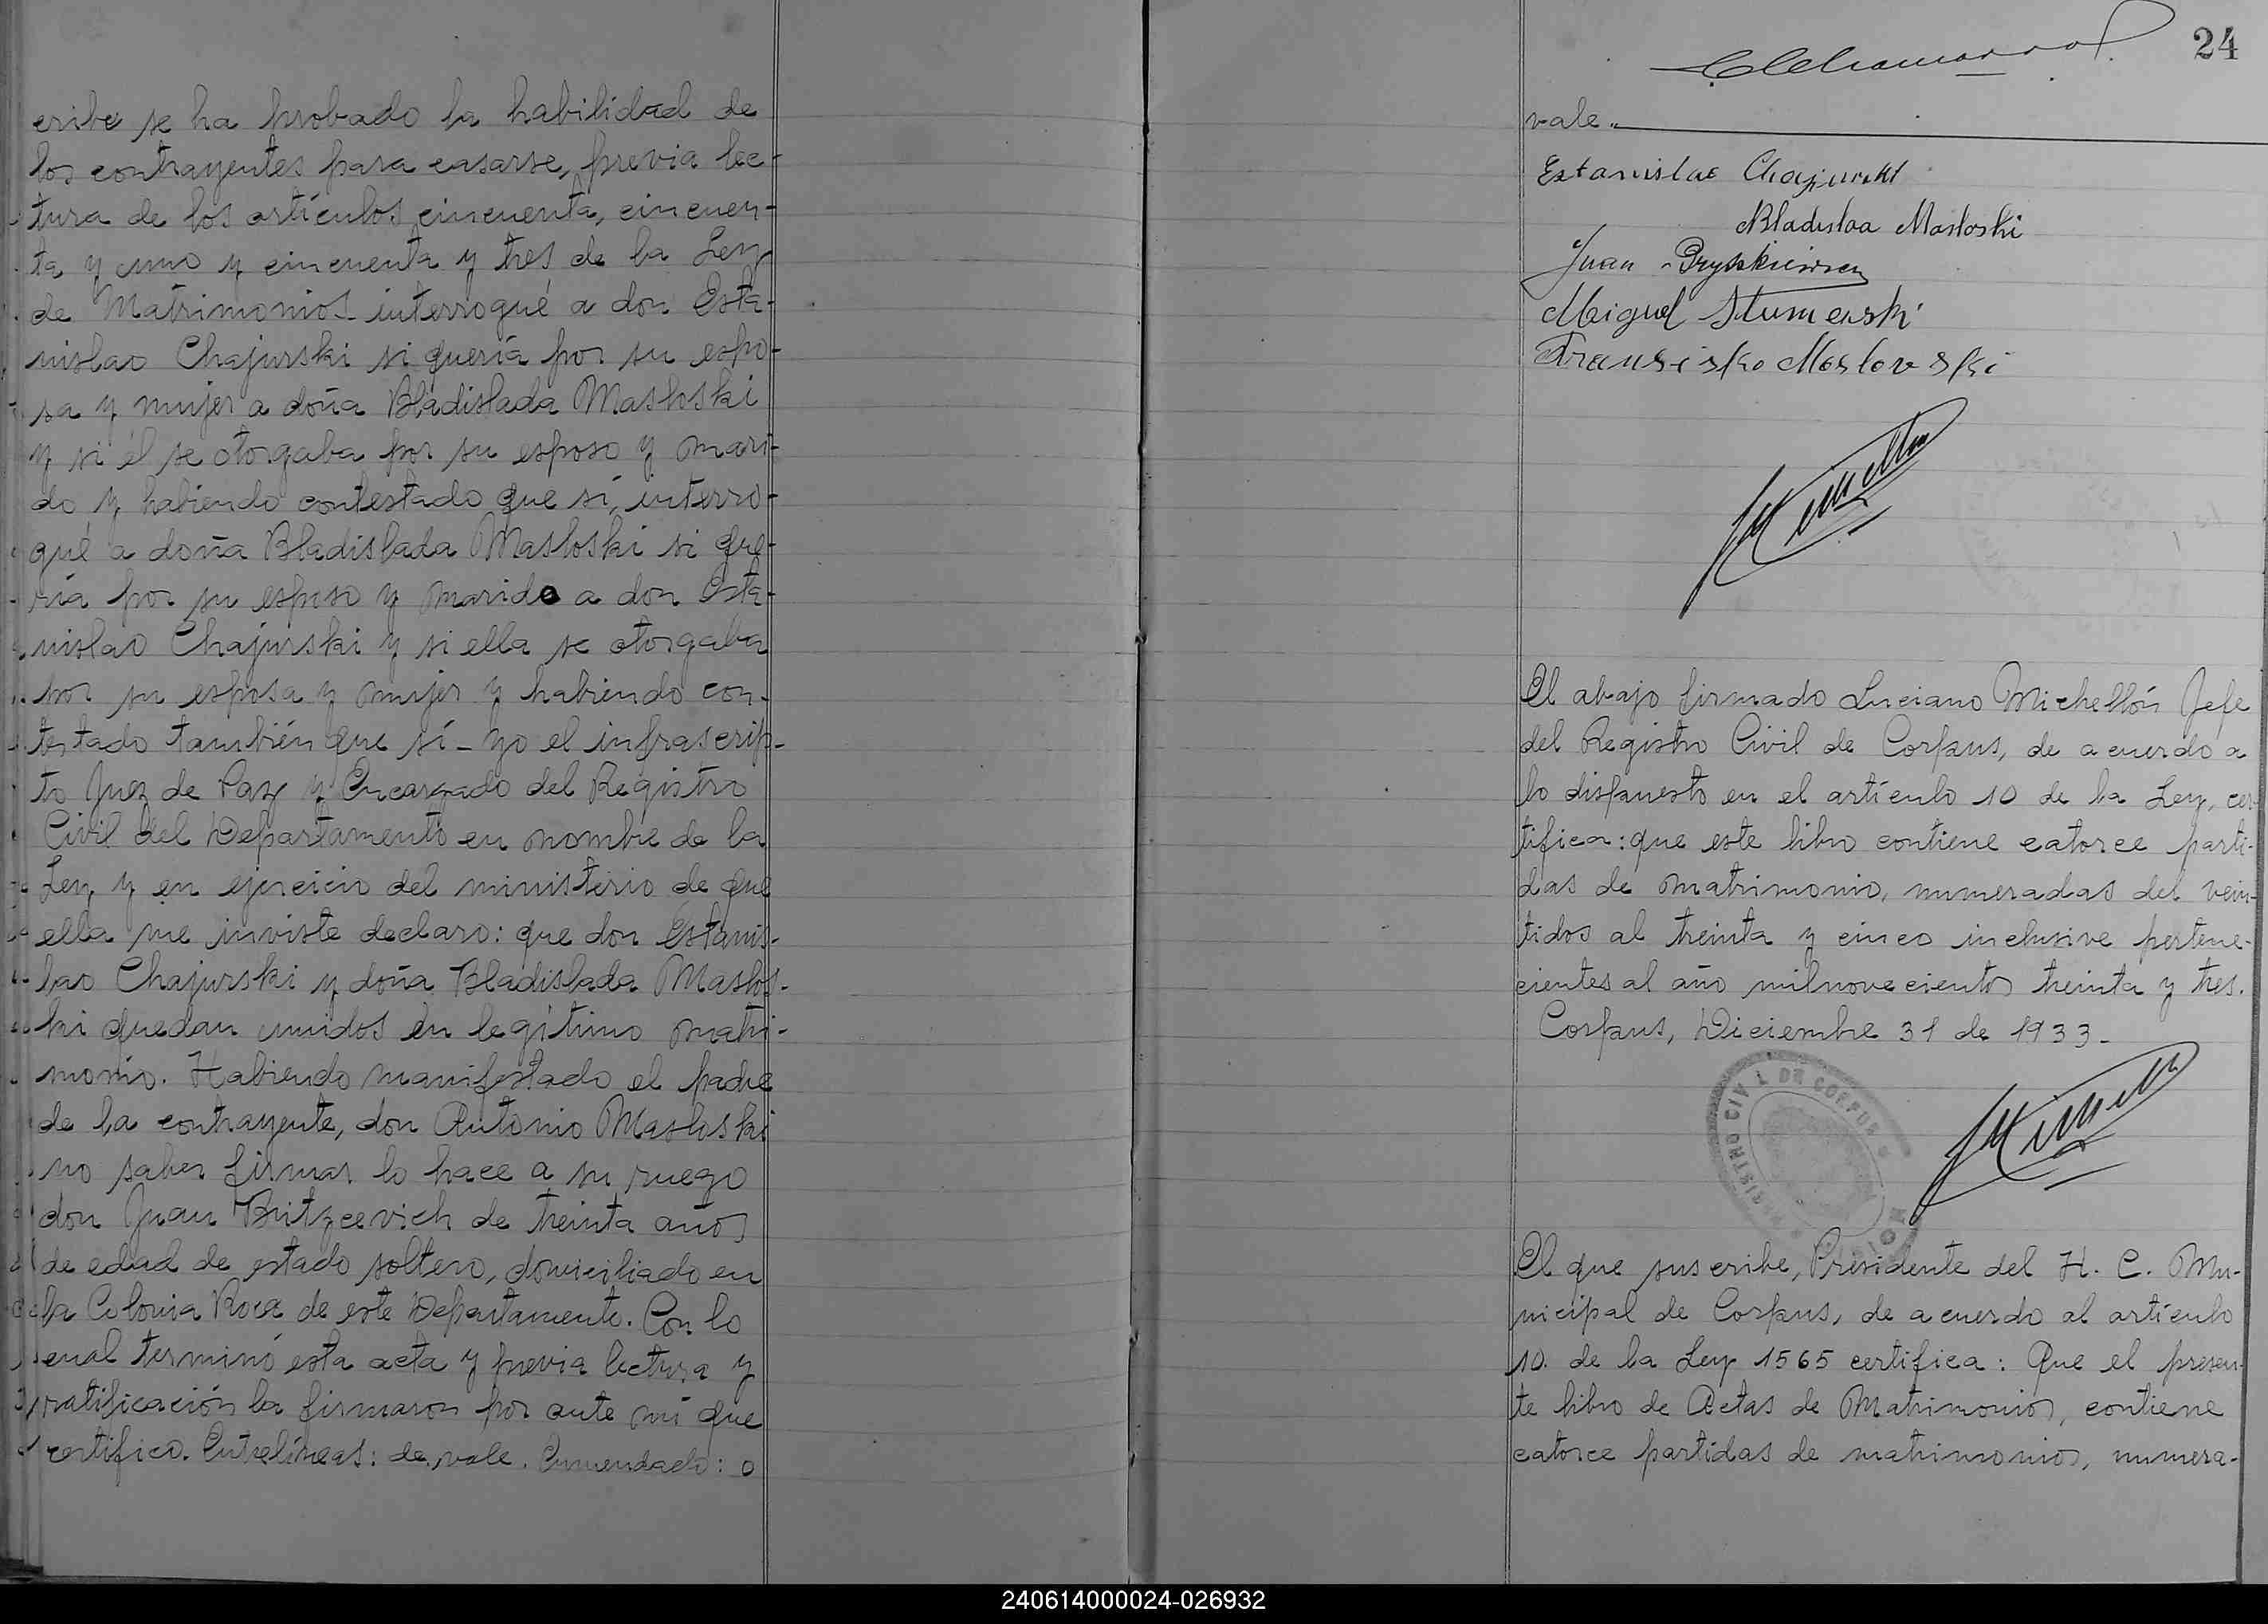 cribe se ha probado la habilidad de
los contrayentes para casarse, previa lec-
tura de los artículos cincuenta, cincuen-
ta y uno y cincuenta y tres de la Ley
de Matrimonios interrogué a don Esta-
nislao Chajurski si quería por su espo-
sa y mujer a doña Bladislada Masloski
y si él se otorgaba por su esposo y mari-
do y habiendo contestado que sí, interro-
gué a doña Bladislada Masloski si que-
ría por su esposo y marido a don Esta-
nislao Chajurski y si ella se otorgaba
por su esposa y mujer y habiendo con-
testado también que sí - yo el infrascrip-
to Juez de Paz y Encargado del Registro
Civil del Departamento en nombre de la
Ley y en ejercicio del ministerio de que
ella me inviste declaro: que don Estanis-
lao Chajurski y doña Bladislada Maslos-
ki quedan unidos en legítimo matri-
monio. Habiendo manifestado el padre
de la contrayente, don Antonio Masloski
no saber firmar lo hace a su ruego
don Juan Britzcevich de treinta años
de edad de estado soltero, domiciliado en
la Colonia Roca de este Departamento. Con lo
cual terminó esta acta y previa lectura y
ratificación la firmaron por ante mí que
certifico. Entrelíneas: de, vale. Enmendado: o
24
vale.
Estanislao Chajurski
Bladislaa Masloski
Juan
Meiguel Stumenski
Fransisko Moslovski
El abajo firmado Luciano Michellón Jefe
del Registro Civil de Corpus, de acuerdo a
lo dispuesto en el artículo 10 de la Ley, cer-
tifica: que este libro contiene catorce parti-
das de matrimonio, numeradas del vein-
tidos al treinta y cinco inclusive pertene-
cientes al año milnovecientos treinta y tres.
Corpus, Diciembre 31 de 1933.-
REGISTRO CIVIL DE CORPUS
El que suscribe, Presidente del H. C. Mu-
nicipal de Corpus, de acuerdo al artículo
10. de la Ley 1565 certifica: Que el presen-
te libro de Actas de Matrimonios, contiene
catorce partidas de matrimonios, numera-
240614000024-026932